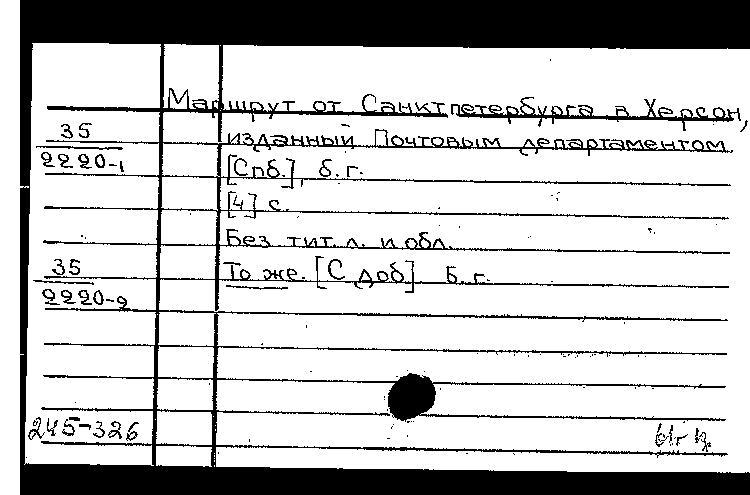 Маршрут от Санктпетербурга в Херсон,
35
изданный Почтовым департаментом.
2220-1
[Спб.], б.г.
[4] с.
Без тит. л. и обл.
35
То же. [С доб]. Б. г.
2220-2
245-326